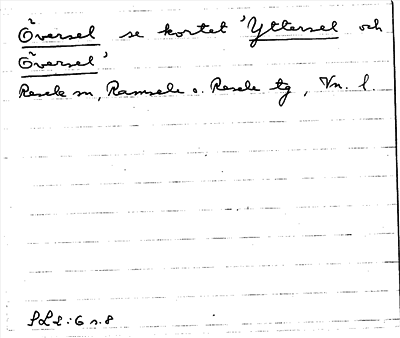 Översel se kortet 'Yttersel och
Översel'
Resele sn, Ramsele o. Resele tg, Vn. l.
SLL:6 s.8